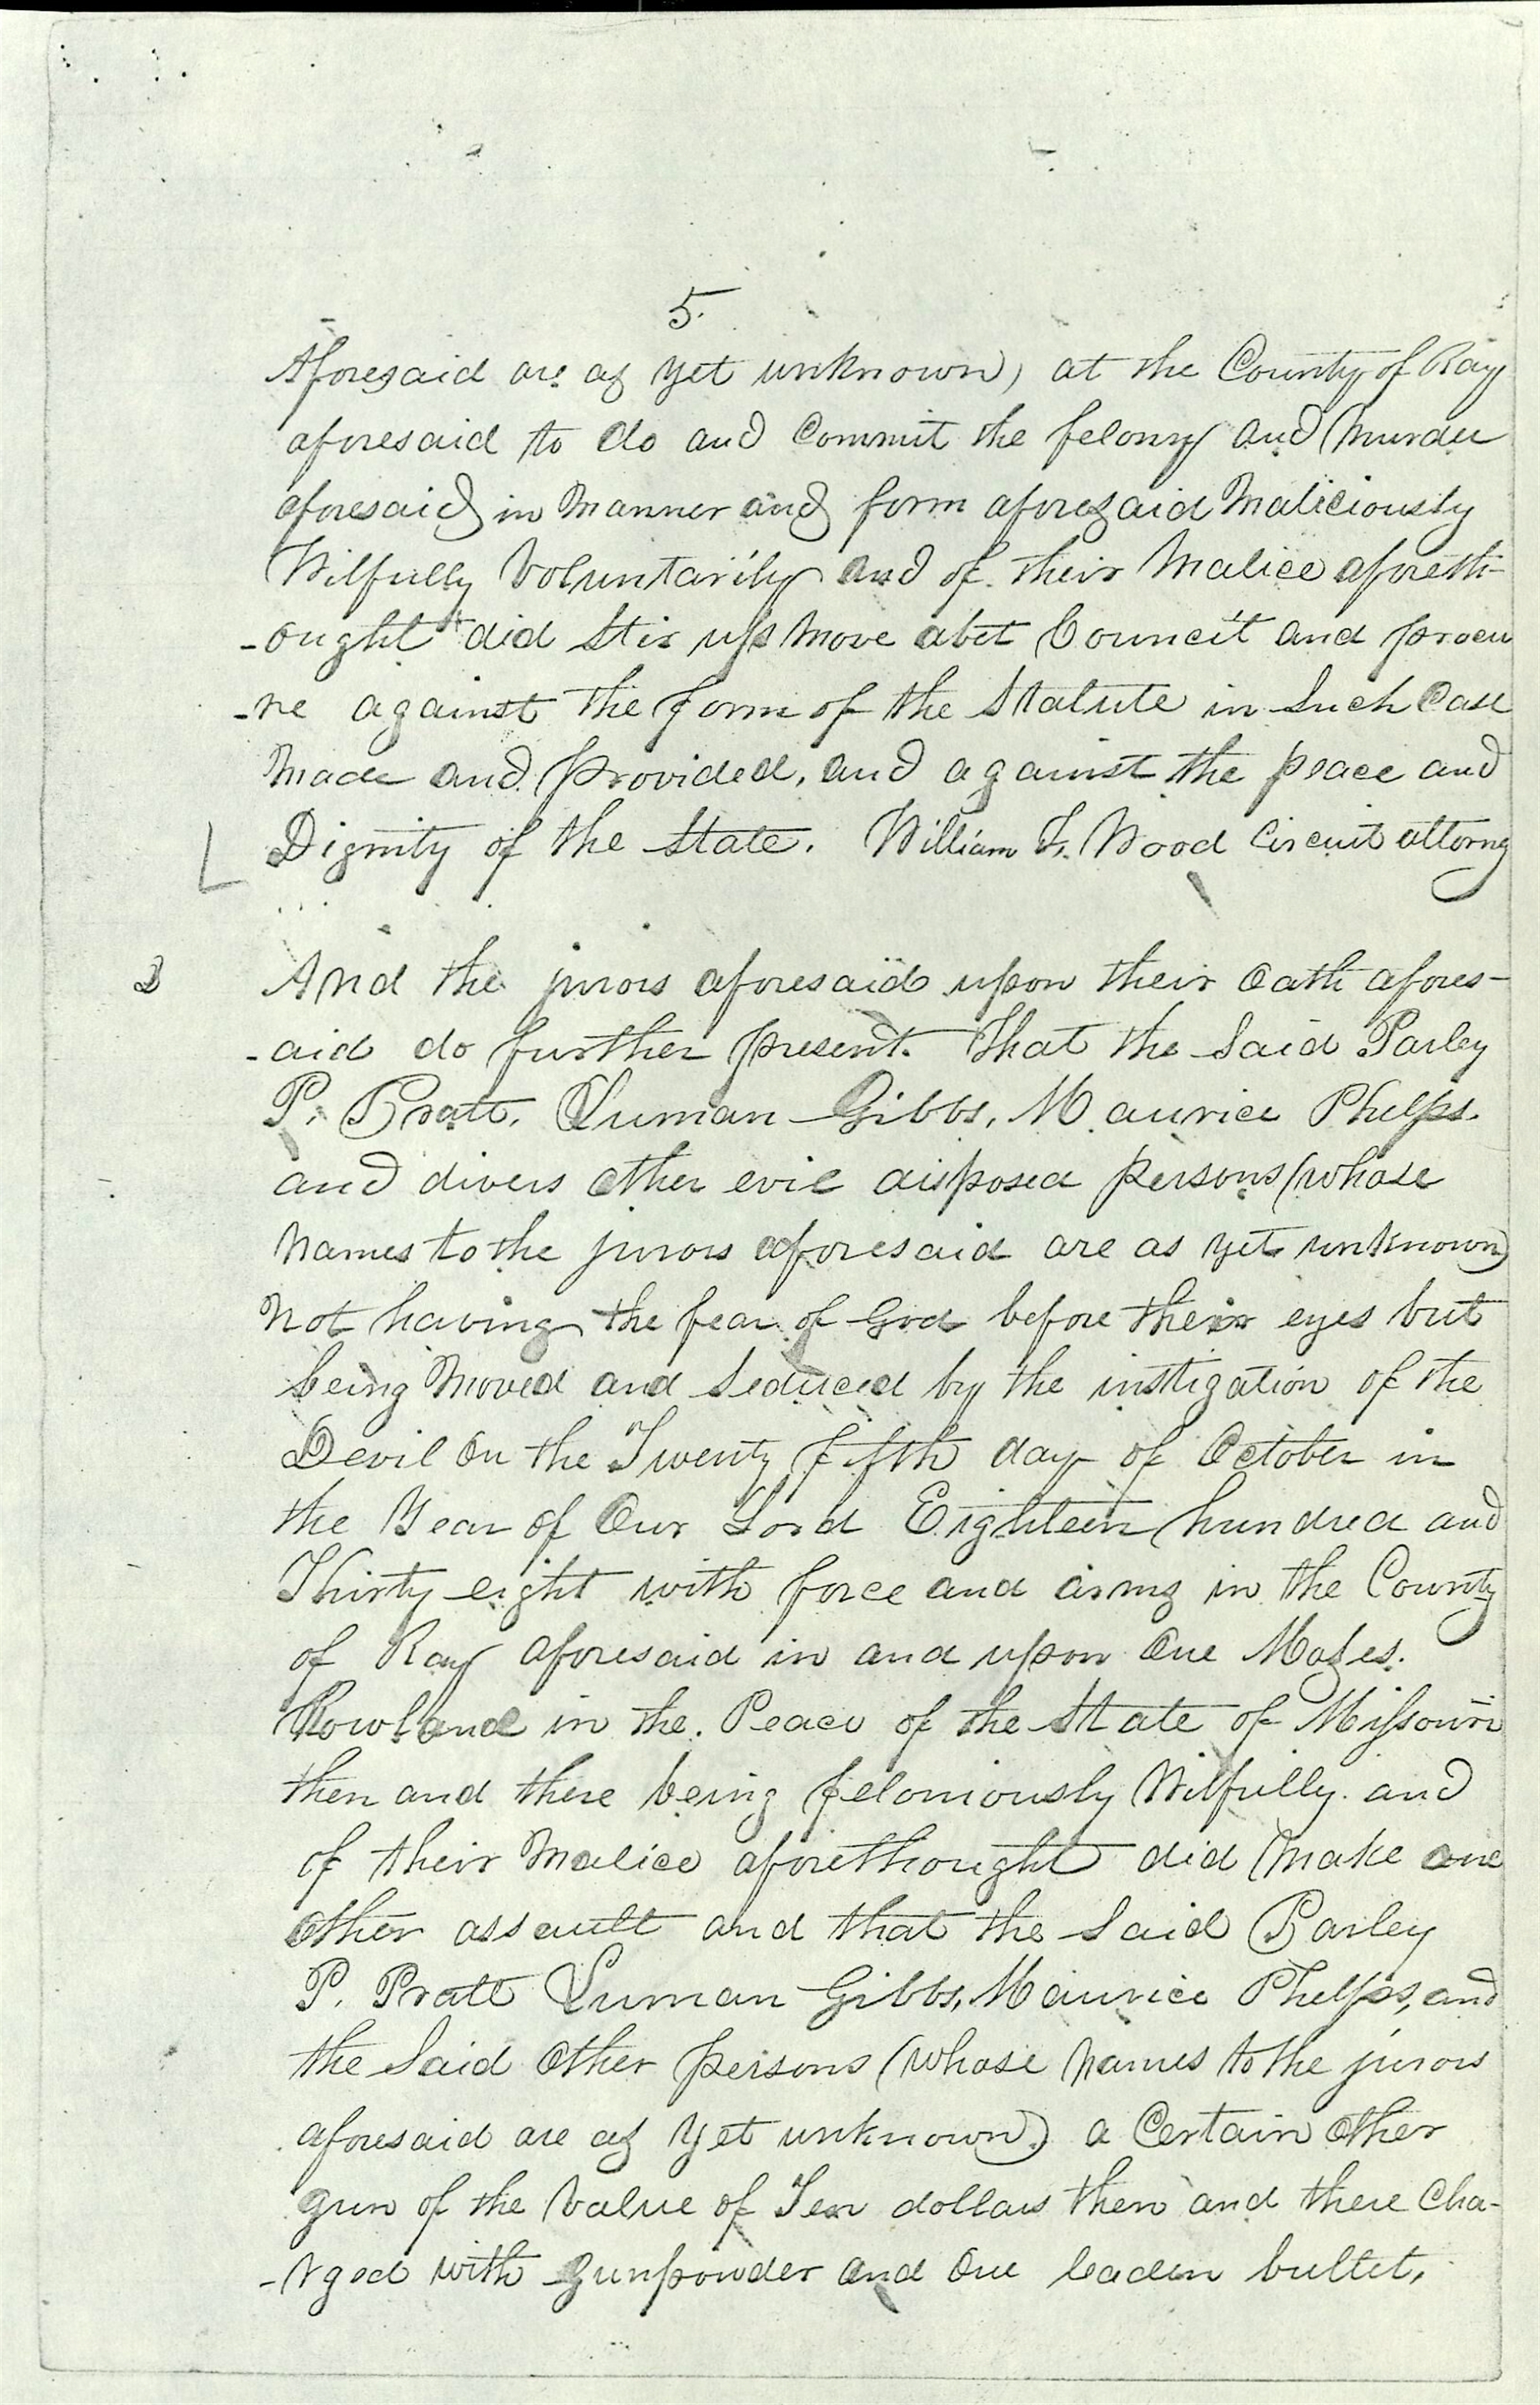 5.
Aforesaid are as yet unknown) at the County of Ray
aforesaid to do and Commit the felony and Murder
aforesaid in Manner and form aforesaid Maliciously
Wilfully Voluntarily and of their Malice aforeth-
-ought did Stir up Move abet Council and procu
-re against the form of the Statute in Such Case
Made and provided, and against the peace and
Dignity of the State. William T. Wood Circuit attorny
And the jurors aforesaid upon their Oath afores-
-aid do further present. That the Said Parley
P. Pratt, Luman Gibbs, Maurice Phelps.
and divers other evil disposed persons (whose
Names to the jurors aforesaid are as yet unknown)
Not having the fear of God before their eyes but
being Moved and Seduced by the instigation of the
Devil On the Twenty fifth day of October in
the Year of Our Lord Eighteen hundred and
Thirty eight with force and arms in the County
of Ray aforesaid in and upon One Moses.
Rowland in the Peace of the State of Missouri
then and there being feloniously Wilfully and
of their Malice aforethought did Make one
other assault and that the Said Parley
P. Pratt Luman Gibbs, Maurice Phelps, and
the Said Other persons (whose Names to the jurors
aforesaid are as yet unknown) a Certain other
gun of the Value of Ten dollars then and there Cha-
-rged with gunpowder and One leaden bullet,